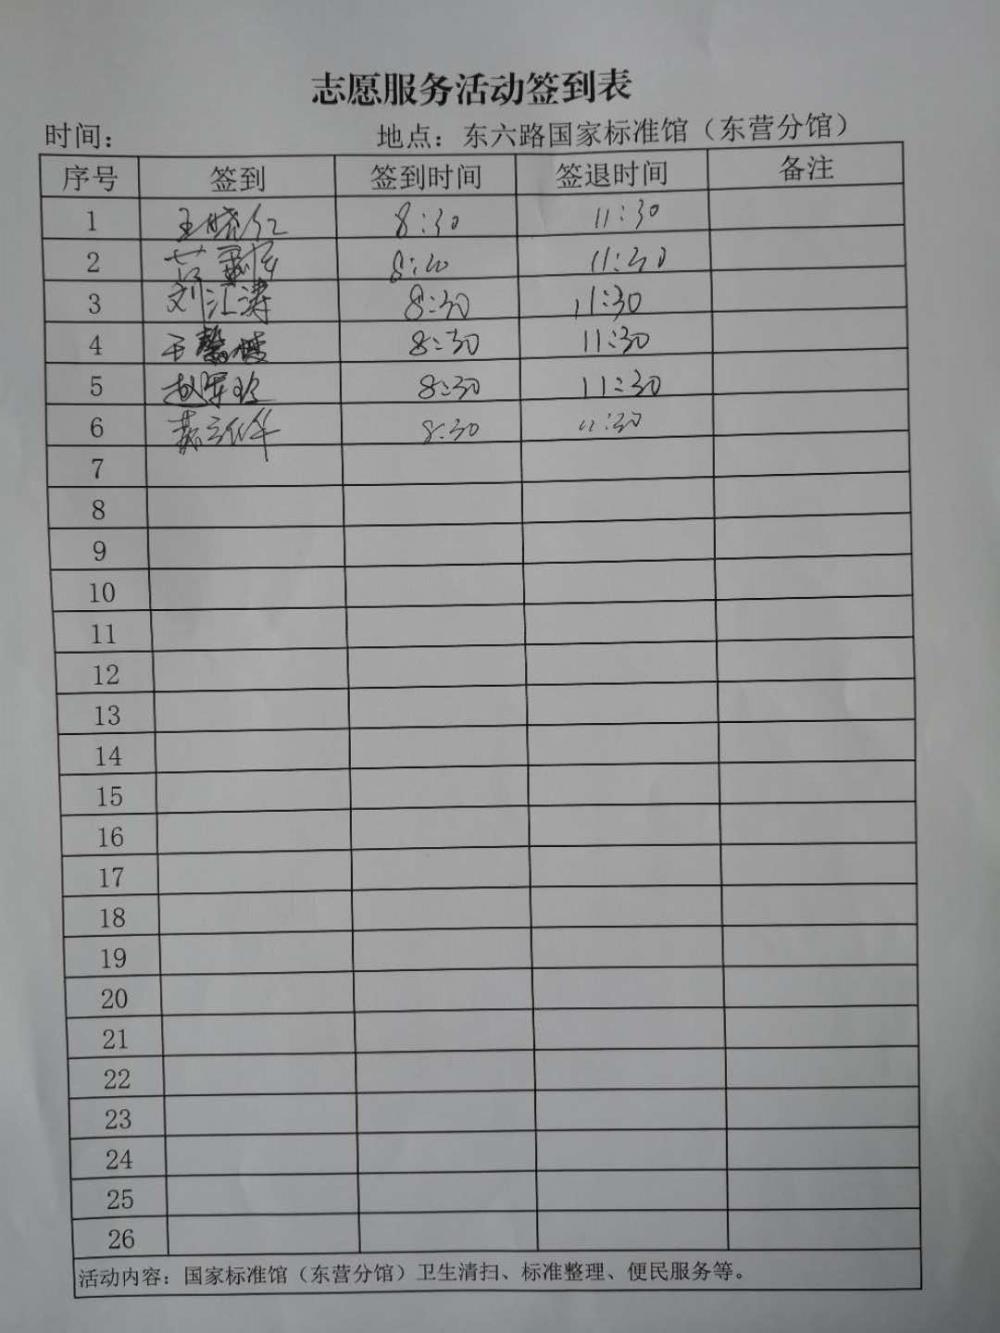 志愿服务活动签到表
时间： 地点：东六路国家标准馆（东营分馆）
序号 签到 签到时间 签退时间 备注
1 王晓红 8:30 11:30
2 8:30 11:30
3 刘汇涛 8:30 11:30
4 8:30 11:30
5 赵军玲 8:30 11:30
6 8:30 11:30
7
8
9
10
11
12
13
14
15
16
17
18
19
20
21
22
23
24
25
26
活动内容：国家标准馆（东营分馆）卫生清扫、标准整理、便民服务等。